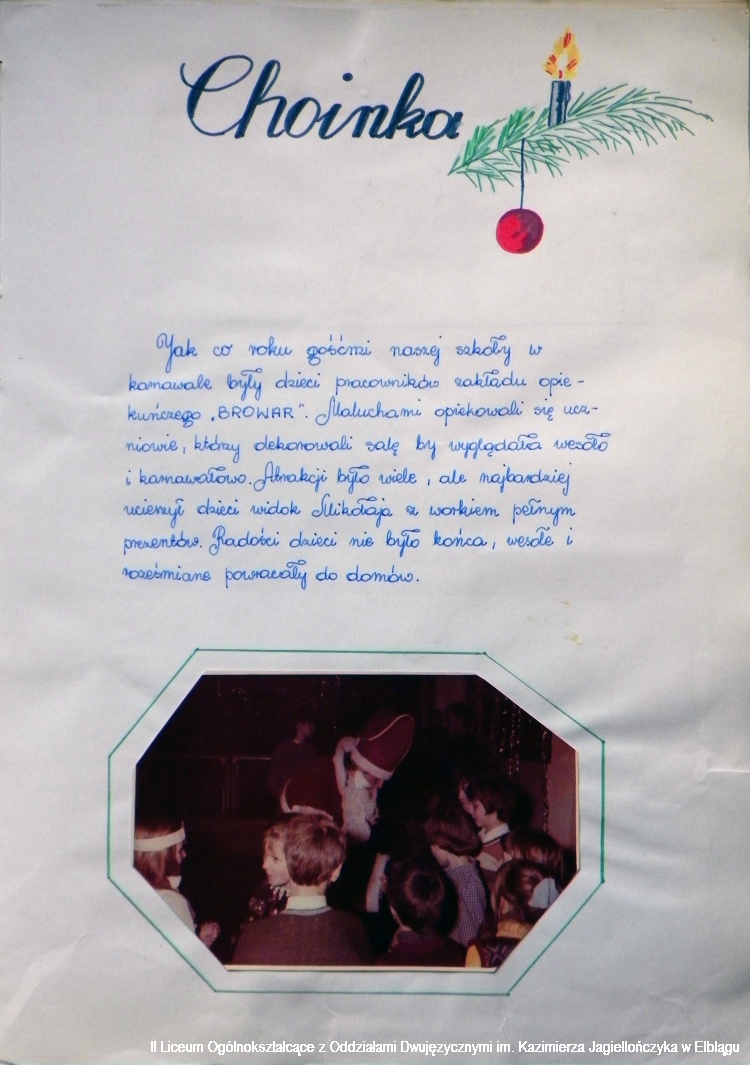 Choinka
Jak co roku gośćmi naszej szkoły w
karnawale były dzieci pracowników zakładu opie-
kuńczego „BROWAR”. Maluchami opiekowali się ucz-
niowie, którzy dekorowali salę by wyglądała wesoło
i karnawałowo. Atrakcji było wiele, ale najbardziej
ucieszył dzieci widok Mikołaja z workiem pełnym
prezentów. Radości dzieci nie było końca, wesołe i
roześmiane powracały do domów.
II Liceum Ogólnokształcące z Oddziałami Dwujęzycznymi im. Kazimierza Jagiellończyka w Elblągu